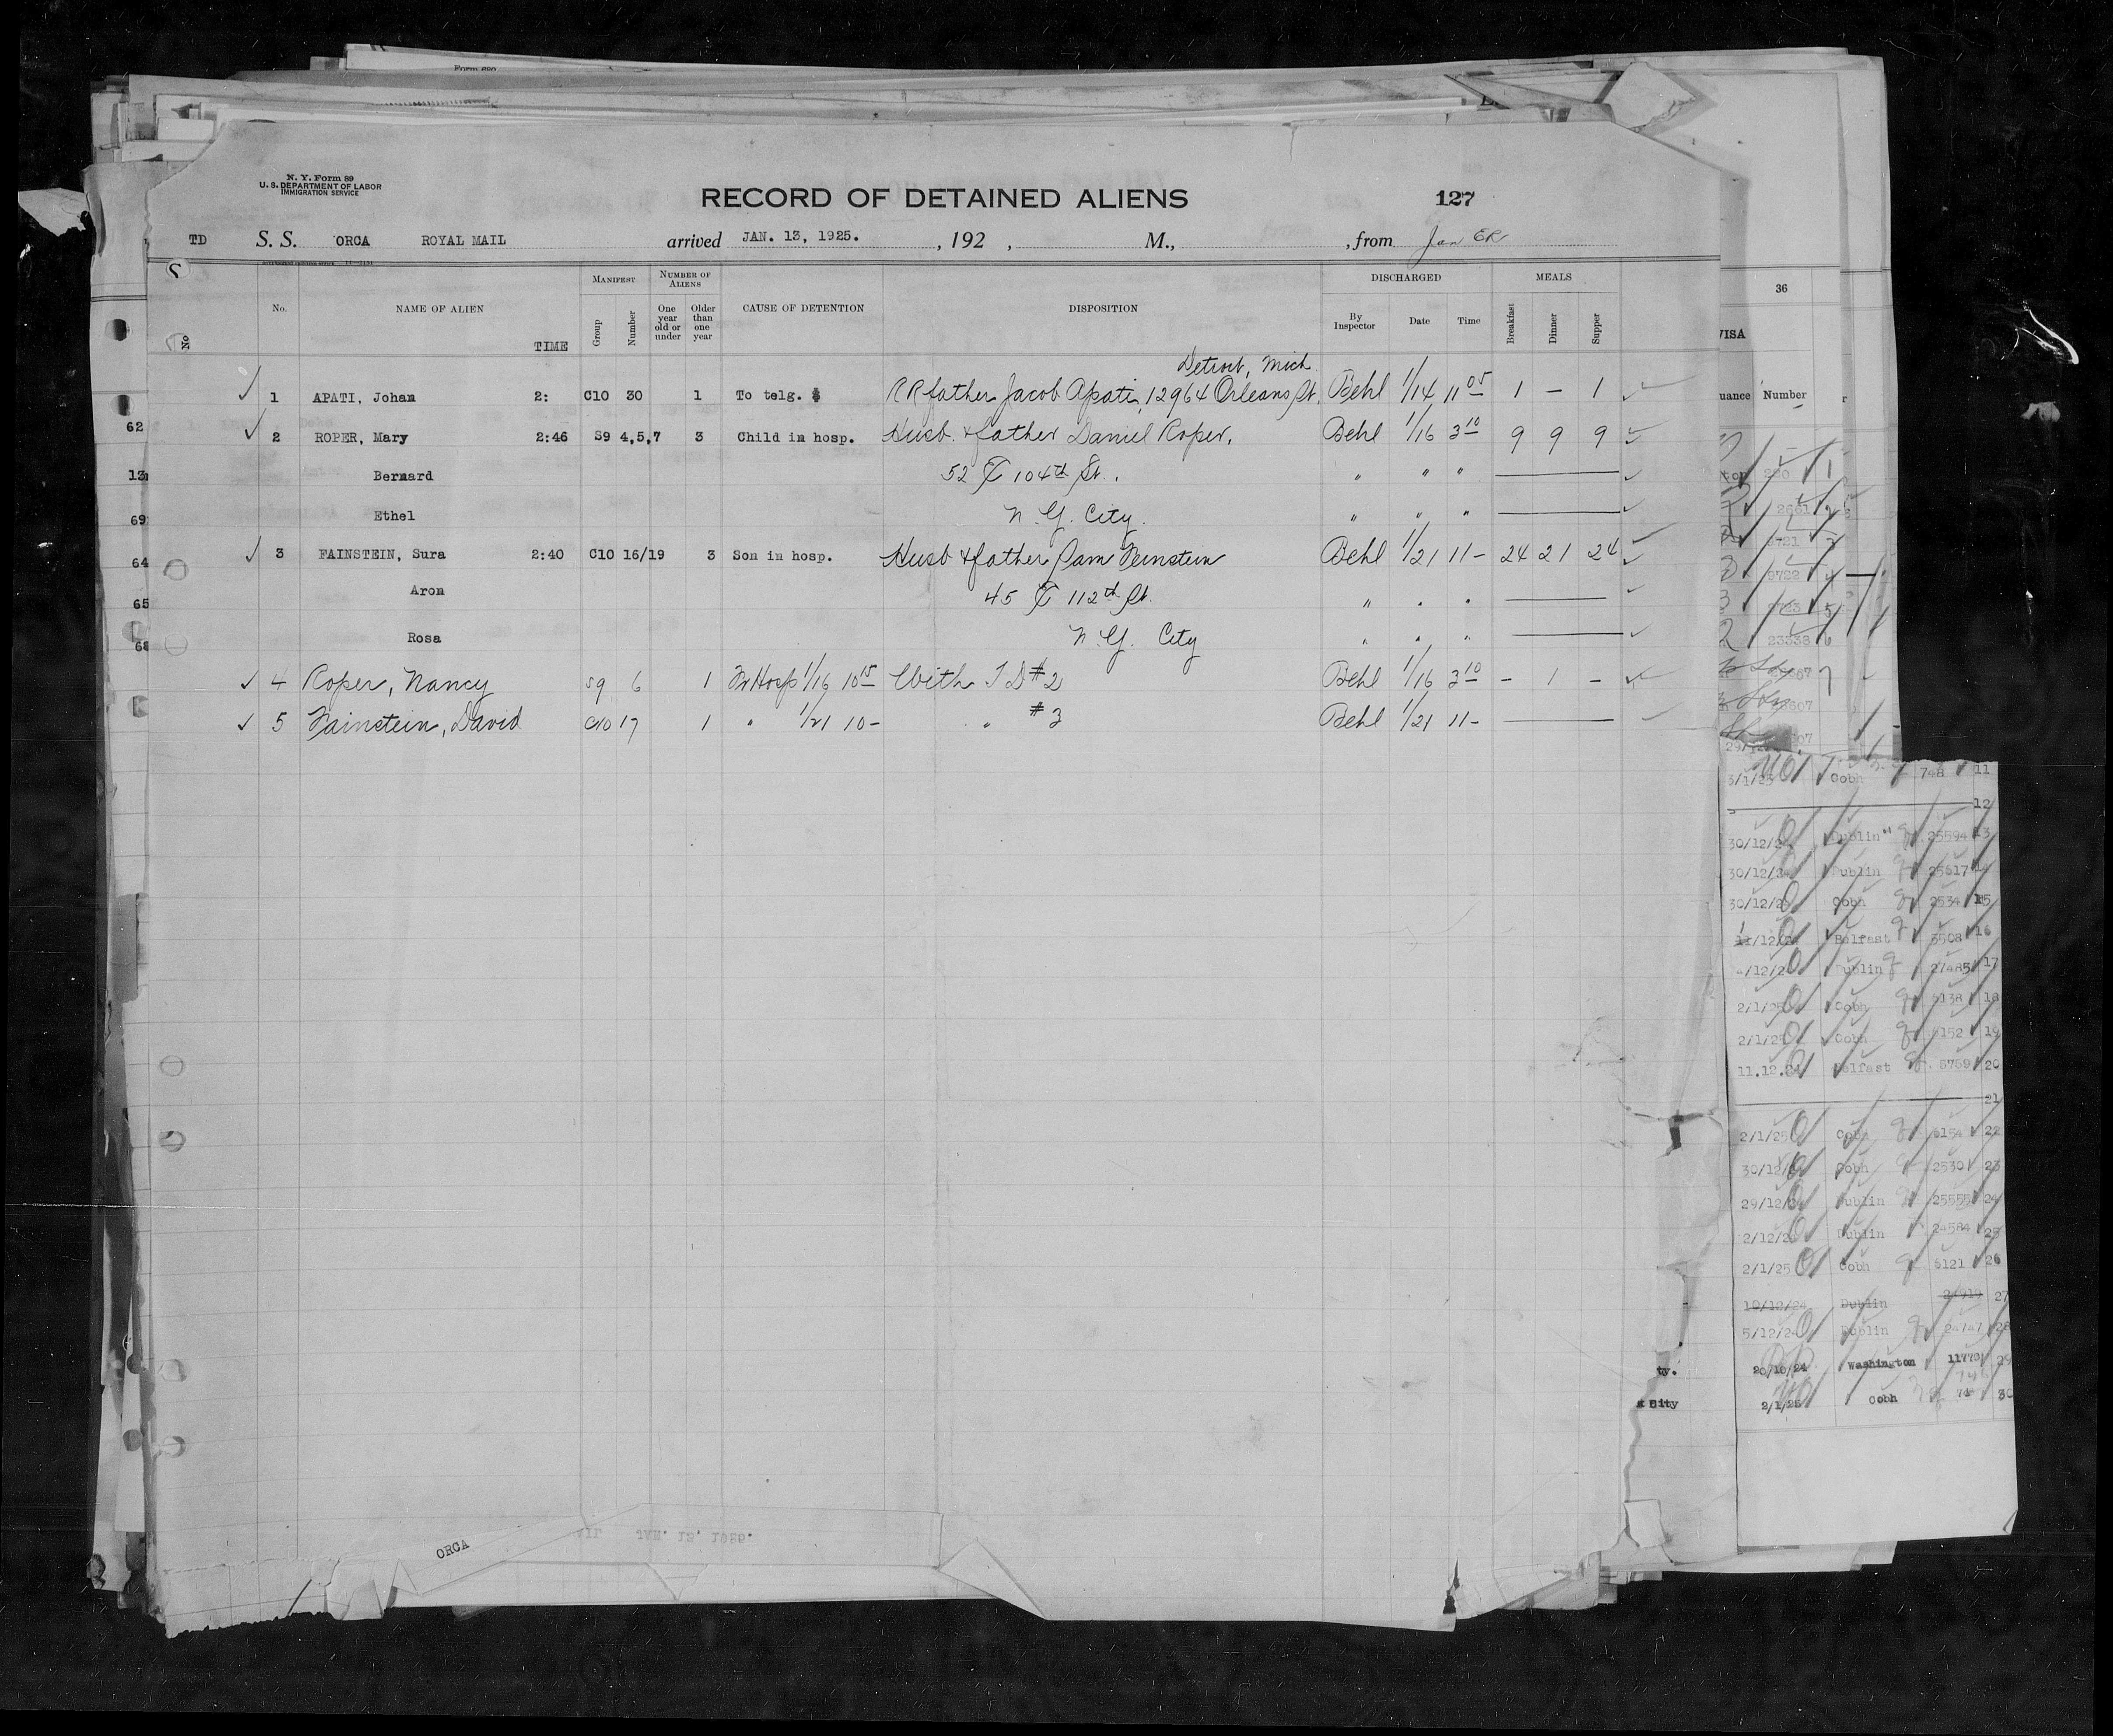 Form 630
N. Y. Form 89
U. S. DEPARTMENT OF LABOR
IMMIGRATION SERVICE
RECORD OF DETAINED ALIENS
127
TD S. S. ORCA ROYAL MAIL arrived JAN. 13, 1925. , 192 , M., , from
MANIFEST NUMBER OF ALIENS DISCHARGED MEALS
No. NAME OF ALIEN TIME Group Number One year old or under Older than one year CAUSE OF DETENTION DISPOSITION By Inspector Date Time Breakfast Dinner Supper
Detroit, Mich
1 APATI, Johan 2: C10 30 1 To telg. $ RR father Jacob Apati, 12964 Orleans St. Behl 1/14 11 05 1 — 1
2 ROPER, Mary 2:46 S9 4,5,7 3 Child in hosp. Husb. + father Daniel Roper, Behl 1/16 3 10 9 9 9
Bernard 52 E 104th St. " " "
Ethel N. Y. City. " " "
3 FAINSTEIN, Sura 2:40 C10 16/19 3 Son in hosp. Husb + father Sam Feinstein Behl 1/21 11- 24 21 24
Aron 45 E 112th St. " " "
Rosa N. Y. City " " "
4 Roper, Nancy S9 6 1 Fr Hosp 1/16 10 15 With TD #2 Behl 1/16 3 10 - 1 -
5 Fainstein, David C10 17 1 " 1/21 10- " #3 Behl 1/21 11-
ORCA
62
13
69
64
65
68
36
VISA
uance Number
2661
23338
3/1/25 Cobh 748 11
12
30/12/24 Dublin 25594 13
30/12/24 Dublin 25617 14
30/12/24 Cobh 2534 15
Belfast 5508 16
Dublin 27485 17
2/1/25 Cobh 6138 18
2/1/25 Cobh 6152 19
11.12.24 Belfast 5759 20
21
2/1/25 Cobh 6154 22
30/12/24 Cobh 2530 23
29/12/24 Dublin 25555 24
2/12/24 Dublin 24584 25
2/1/25 Cobh 6121 26
19/12/24 Dublin 27
5/12/24 Dublin 24747 28
ty. 20/10/24 Washington 11773 29
k City 2/1/25 Cobh 30